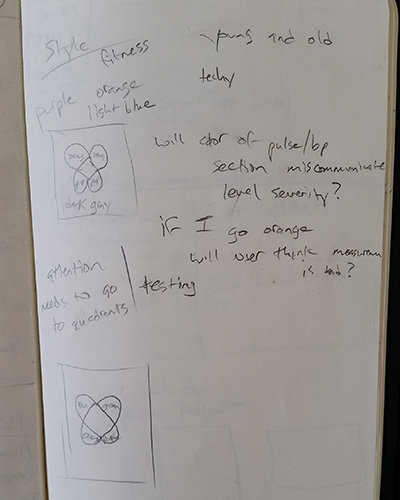 Style
fitness
young and old
techy
purple orange
light blue
dark gray
will color of pulse/bp
section miscommunicate
level severity?
if I go orange
will user think measurem
is bad?
attention
needs to go
to quadrants
testing